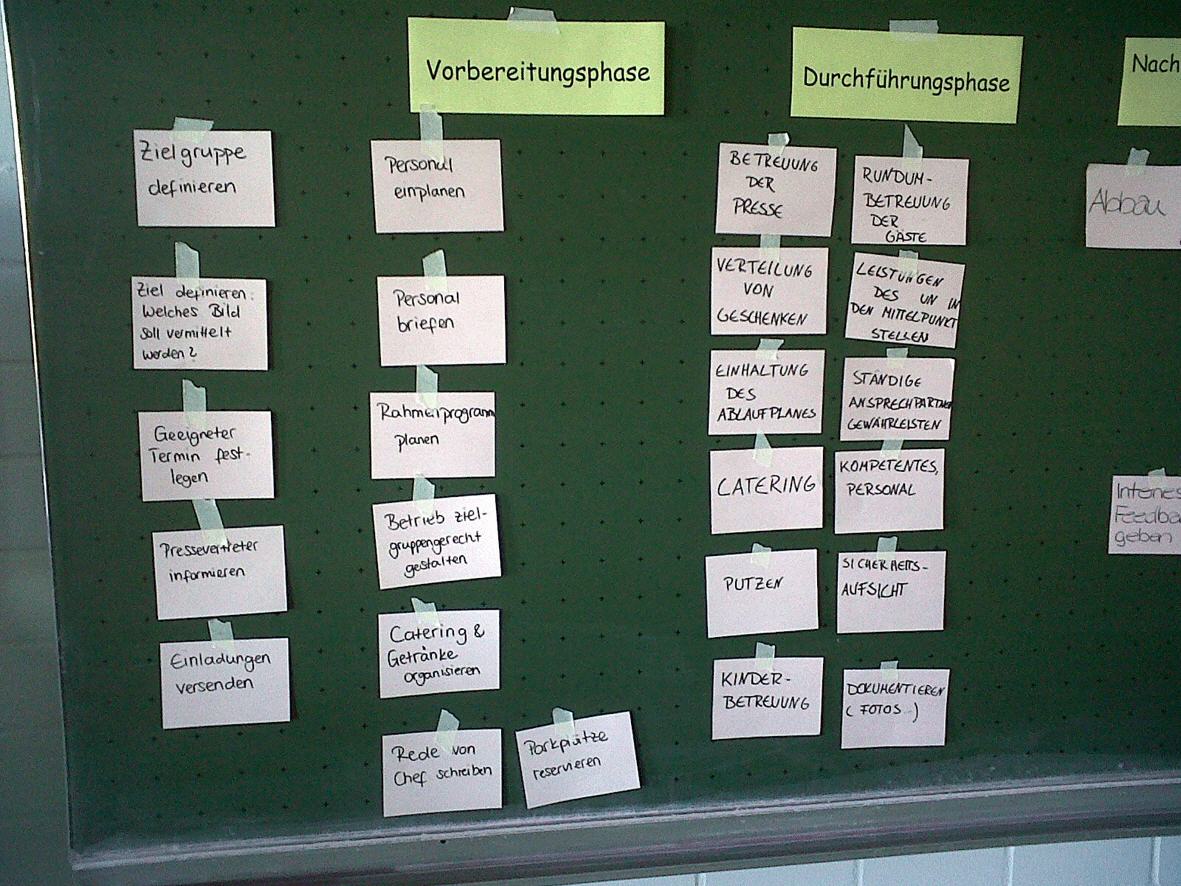 Vorbereitungsphase
Zielgruppe
definieren
Ziel definieren:
Welches Bild
soll vermittelt
werden?
Geeigneter
Termin fest-
legen
Pressevertreter
informieren
Einladungen
versenden
Personal
einplanen
Personal
briefen
Rahmenprogramm
planen
Betrieb ziel-
gruppengerecht
gestalten
Catering &
Getränke
organisieren
Rede von
Chef schreiben
Parkplätze
reservieren
Durchführungsphase
BETREUUNG
DER
PRESSE
VERTEILUNG
VON
GESCHENKEN
EINHALTUNG
DES
ABLAUFPLANES
CATERING
PUTZEN
KINDER-
BETREUUNG
RUNDUM-
BETREUUNG
DER
GÄSTE
LEISTUNGEN
DES UN IN
DEN MITTELPUNKT
STELLEN
STÄNDIGE
ANSPRECHPARTNER
GEWÄHRLEISTEN
KOMPETENTES,
PERSONAL
SICHERHEITS-
AUFSICHT
DOKUMENTIEREN
(FOTOS...)
Nach
Abbau
Internes
Feedba
geben